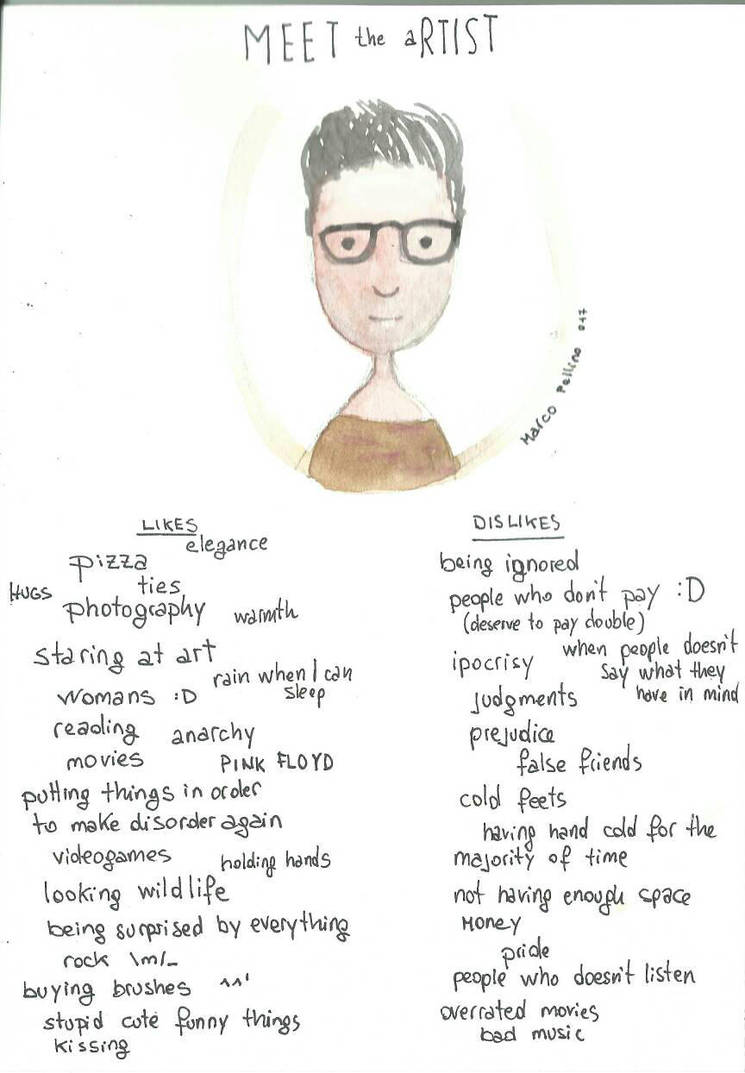 MEET the aRTIST
Marco Pellino 017
LIKES
elegance
pizza
ties
HUGS
photography
warmth
staring at art
rain when I can
sleep
womans :D
reading
anarchy
movies
PINK FLOYD
putting things in order
to make disorder again
videogames
holding hands
looking wildlife
being surprised by everything
rock \m/_
buying brushes ^^'
stupid cute funny things
kissing
DISLIKES
being ignored
people who don't pay :D
(deserve to pay double)
ipocrisy
when people doesn't
say what they
have in mind
judgments
prejudice
false friends
cold feets
having hand cold for the
majority of time
not having enough space
MONEY
pride
people who doesn't listen
overrated movies
bad music